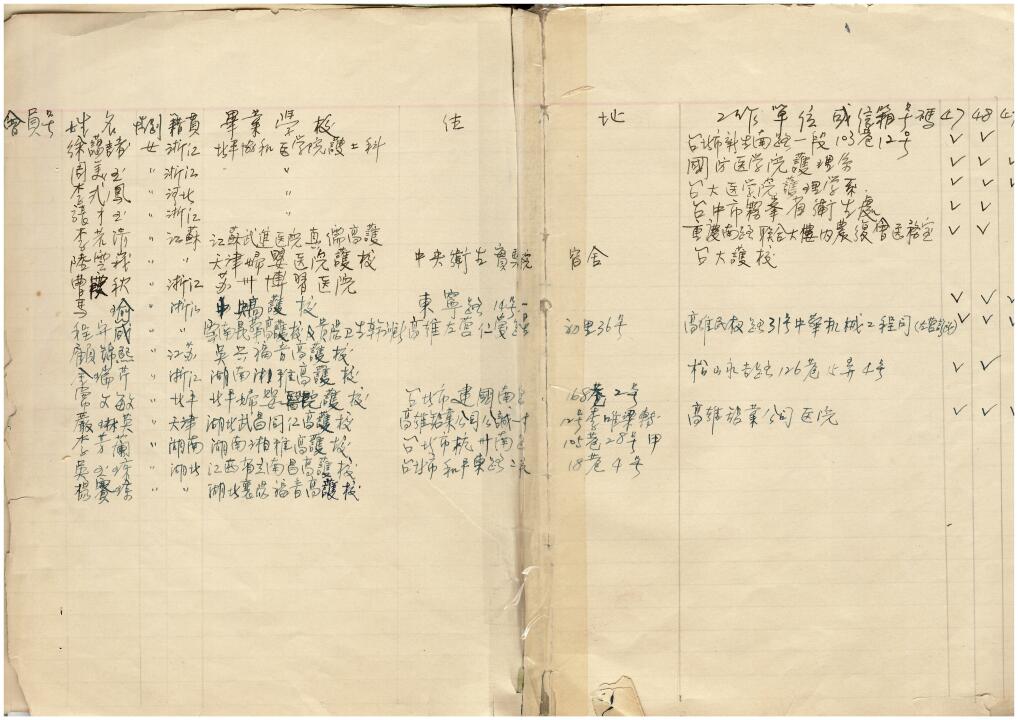 會員号 姓名 性别 籍貫 畢業學校 住 地 工作單位或信箱号碼 47 48 4
徐藹諸 女 浙江 北平協和医学院護士科 台北市新生南路一段103巷12号 ✓ ✓
周美玉 〃 浙江 〃 國防医学院護理系 ✓ ✓ ✓
李式鳳 〃 河北 〃 台大医学院護理学系 ✓ ✓ ✓
張才玉 〃 浙江 〃 台中市 衛生處 ✓ ✓ ✓
李 清 〃 江蘇 江蘇武進医院真儒高護 重慶南路聯合大樓内農復會医務室 ✓ ✓ ✓
陸雪 〃 〃 天津婦嬰医院護校 中央衛生實驗院 宿舍 台大護校 ✓ ✓ ✓
曹 秋 〃 浙江 苏州博習医院
馬瑜 〃 浙江 中央高護校 東寧路14号 ✓ ✓ ✓
程 咸 〃 〃 雲南昆華高護校及貴陽卫生幹 高雄左營仁愛 初里36号 高雄民权路31号中華机械工程司 ✓ ✓ ✓
顧錦熙 〃 江苏 吴兴福音高護校
金瑞芹 〃 浙江 湖南湘雅高護校 松山永吉路126巷15弄4号 ✓ ✓
常文敏 〃 北平 北平婦嬰醫院護校 台北市建國南路 168巷2号
嚴琳英 〃 天津 湖北武昌同仁高護校 高雄鋁業公司公誠 12号 高雄鋁業公司医院 ✓ ✓ ✓
李芳蘭 〃 湖南 湖南湘雅高護校 台北市杭州南 105巷28号甲
吴玉 〃 湖北 江西省立南昌高護校 台北市和平東路二段 18巷4号
楊寶 〃 〃 湖北襄陽福音高護校